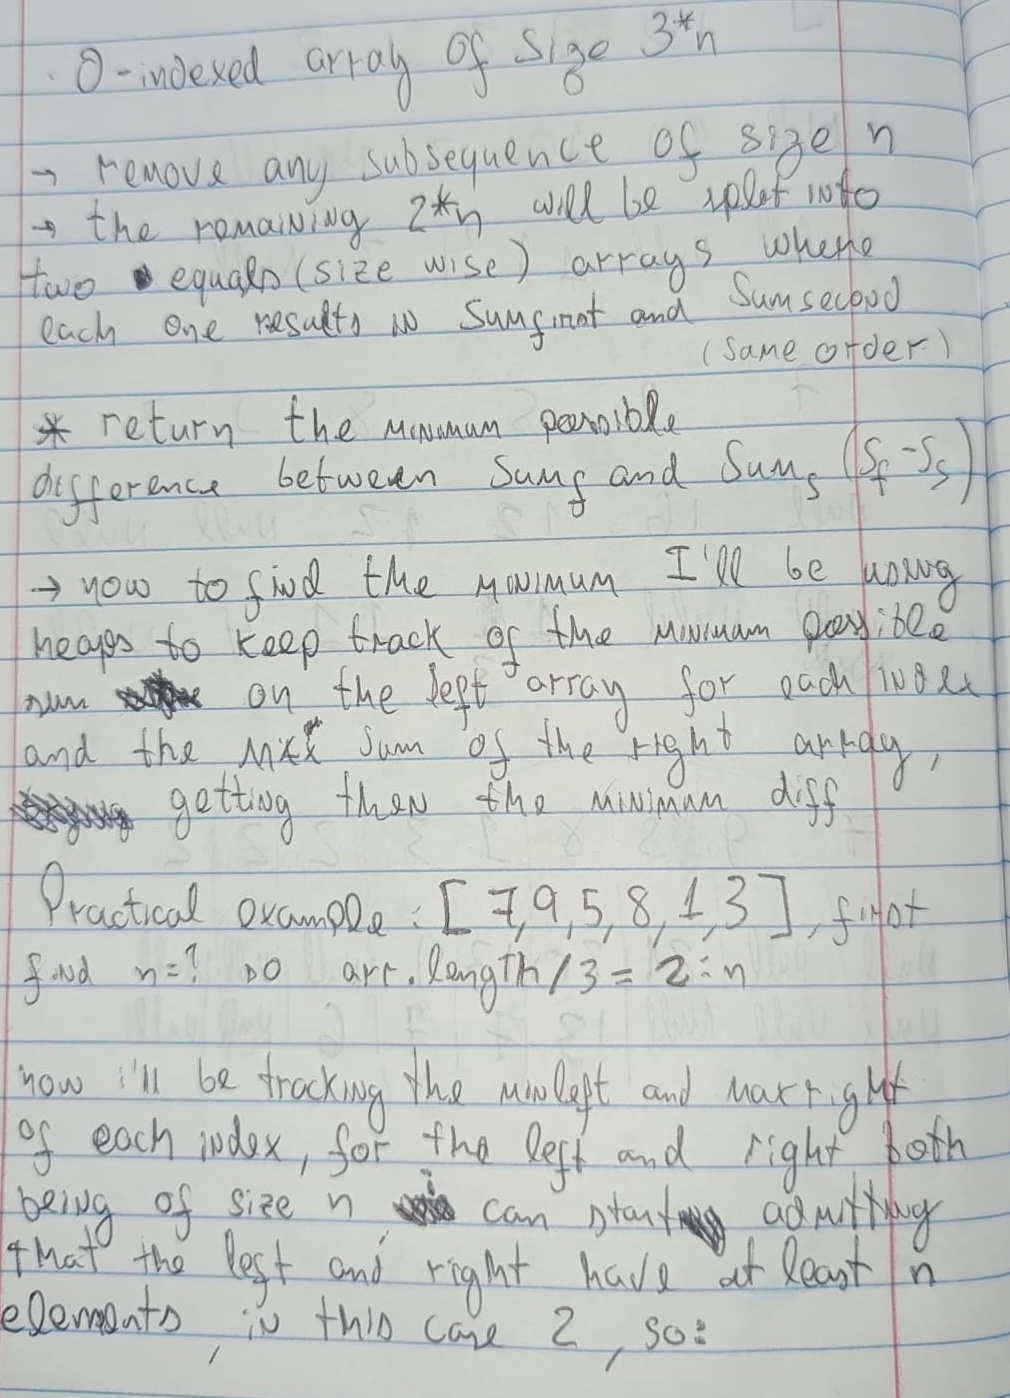 0-indexed array of size 3*n
→ remove any subsequence of size n
→ the remaining 2*n will be split into
two equals (size wise) arrays where
each one results in Sumfirst and Sumsecond
(same order)
* return the minimum possible
difference between Sumf and Sums (Sf-Ss)
→ now to find the minimum I'll be using
heaps to keep track of the minimum possible
sum on the left array for each index
and the max sum of the right array,
getting then the minimum diff
Practical example: [7,9,5,8,1,3], first
find n=? so arr.length/3 = 2 = n
now i'll be tracking the minleft and maxright
of each index, for the left and right both
being of size n i can start admitting
that the left and right have at least n
elements, in this case 2, so: